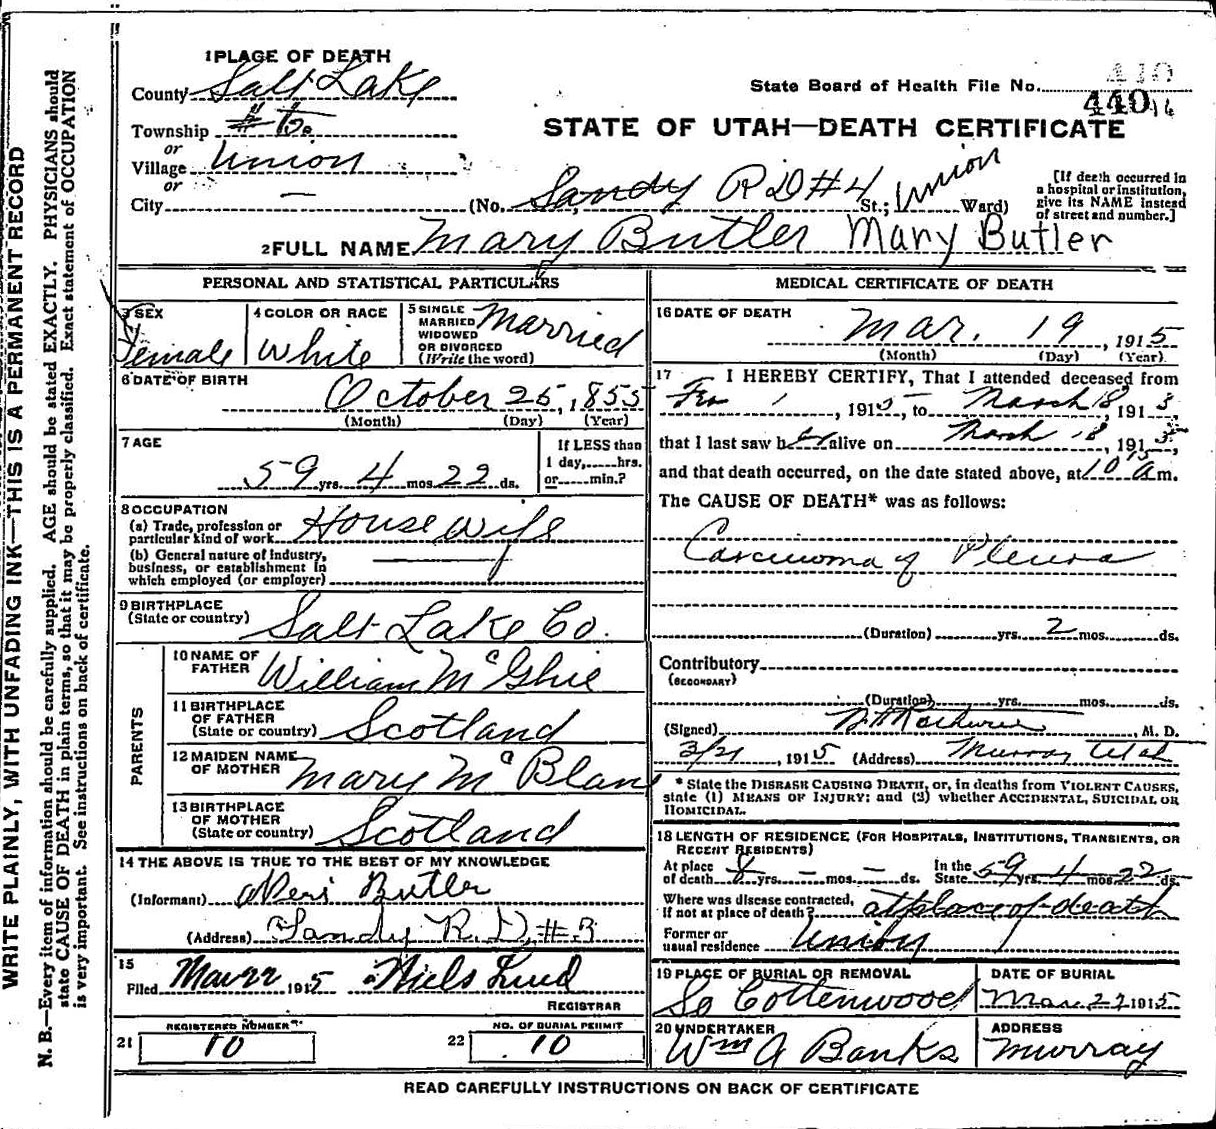 1 PLACE OF DEATH
County Salt Lake
Township
or
Village Union
or
City —
State Board of Health File No. 440
440
STATE OF UTAH—DEATH CERTIFICATE
(No. Sandy R D #4 St.; Union Ward)
[If death occurred in a hospital or institution, give its NAME instead of street and number.]
2 FULL NAME Mary Butler Mary Butler
PERSONAL AND STATISTICAL PARTICULARS
3 SEX
Female
4 COLOR OR RACE
White
5 SINGLE MARRIED WIDOWED OR DIVORCED (Write the word)
Married
6 DATE OF BIRTH
October 25, 1855
(Month) (Day) (Year)
7 AGE
59 yrs. 4 mos. 22 ds.
If LESS than 1 day,......hrs. or......min.?
8 OCCUPATION
(a) Trade, profession or particular kind of work Housewife
(b) General nature of Industry, business, or establishment in which employed (or employer)
9 BIRTHPLACE
(State or country) Salt Lake Co.
PARENTS
10 NAME OF FATHER William McGhie
11 BIRTHPLACE OF FATHER (State or country) Scotland
12 MAIDEN NAME OF MOTHER Mary McBlan
13 BIRTHPLACE OF MOTHER (State or country) Scotland
14 THE ABOVE IS TRUE TO THE BEST OF MY KNOWLEDGE
(Informant) Butler
(Address) Sandy R. D. #3
15
Filed Mar 22 1915 Niels Lind
REGISTRAR
REGISTERED NUMBER
21 10
NO. OF BURIAL PERMIT
22 10
MEDICAL CERTIFICATE OF DEATH
16 DATE OF DEATH
Mar. 19, 1915
(Month) (Day) (Year)
17 I HEREBY CERTIFY, That I attended deceased from
1, 1915, to March 18, 191
that I last saw her alive on March 18, 1915,
and that death occurred, on the date stated above, at 10 15 a m.
The CAUSE OF DEATH* was as follows:
Carcinoma of Pleura
(Duration) yrs. 2 mos. ds.
Contributory
(SECONDARY)
(Duration) yrs. mos. ds.
(Signed) , M. D.
3/21, 1915 (Address) Murray Utah
* State the DISEASE CAUSING DEATH, or, in deaths from VIOLENT CAUSES, state (1) MEANS OF INJURY; and (2) whether ACCIDENTAL, SUICIDAL OR HOMICIDAL.
18 LENGTH OF RESIDENCE (FOR HOSPITALS, INSTITUTIONS, TRANSIENTS, OR RECENT RESIDENTS)
At place of death 8 yrs. — mos. — ds. In the State 59 yrs. 4 mos. 22 ds.
Where was disease contracted, If not at place of death? at place of death
Former or usual residence Union
19 PLACE OF BURIAL OR REMOVAL
So Cottonwood
DATE OF BURIAL
Mar. 22 1915
20 UNDERTAKER
Wm A Banks
ADDRESS
Murray
READ CAREFULLY INSTRUCTIONS ON BACK OF CERTIFICATE
WRITE PLAINLY, WITH UNFADING INK—THIS IS A PERMANENT RECORD
N. B.—Every item of information should be carefully supplied. AGE should be stated EXACTLY. PHYSICIANS should
state CAUSE OF DEATH in plain terms, so that it may be properly classified. Exact statement of OCCUPATION
is very important. See instructions on back of certificate.